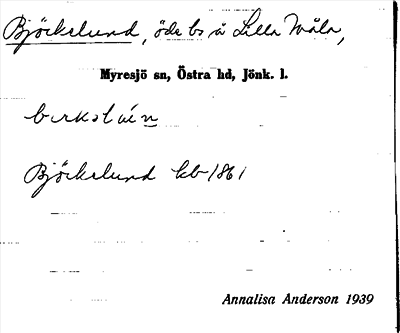 Björkelund, öde bs å Lilla Måla,
Myresjö sn, Östra hd, Jönk. l.
Björkelund kb 1861
Annalisa Anderson 1939